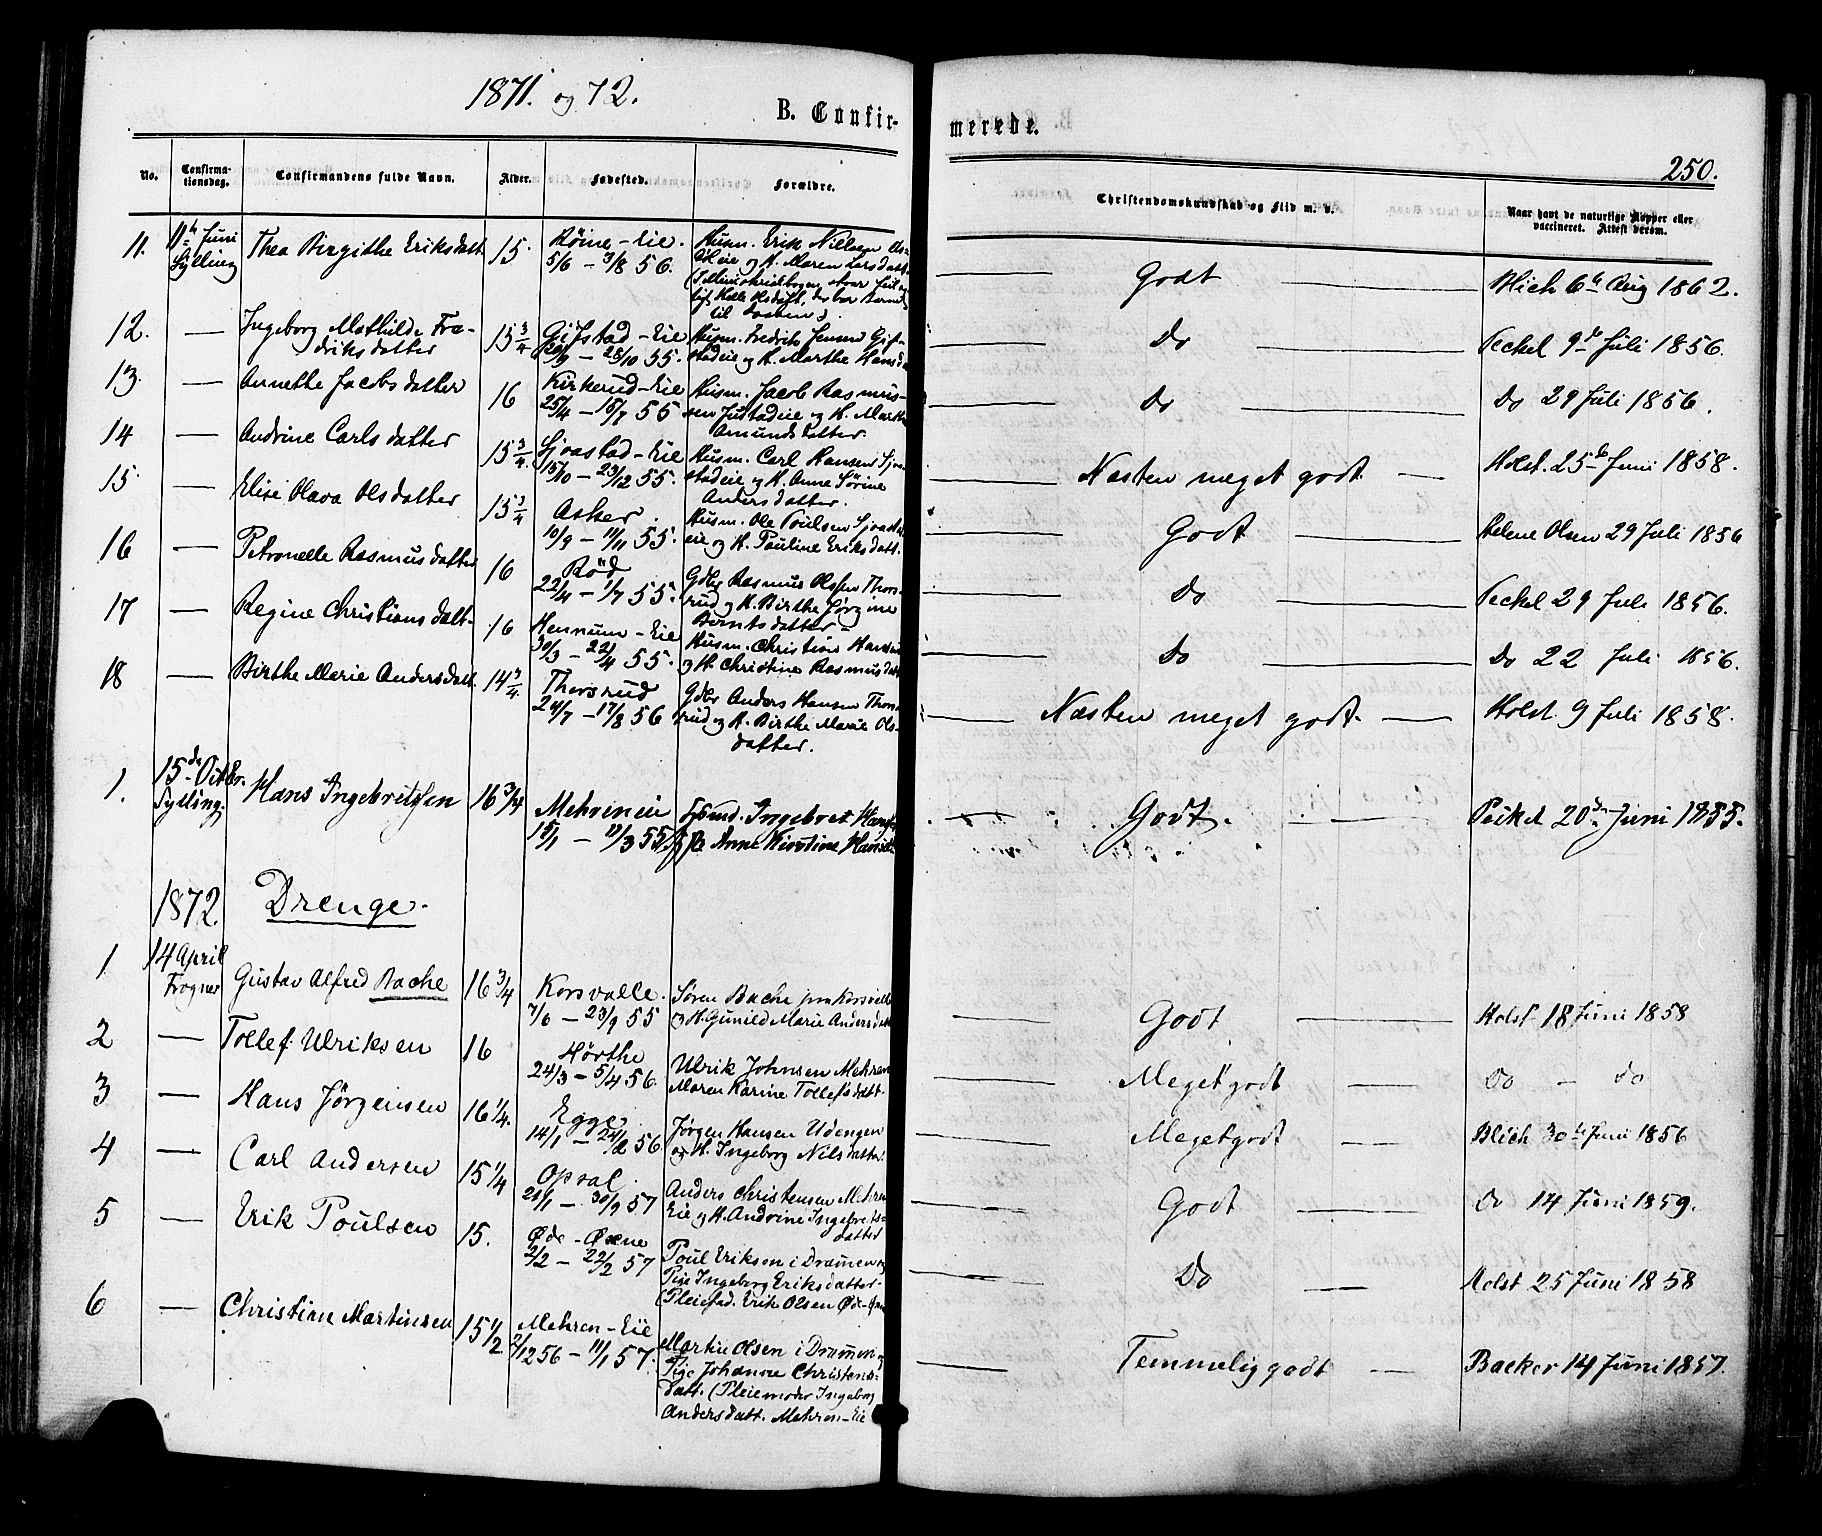 1871. og 72.
B. Confirmerede.
250.
No.
Confirmationsdag.
Confirmandens fulde Navn.
Alder.
Fødested.
Forældre.
Christendomskundskab og Flid m. v.
Naar havt de naturlige Kopper eller vaccineret. Attest derom.
11. 11te Juni Sylling Thea Birgithe Eriksdatt. 15. Røine-Eie.
5/6 - 3/8 56.
Husm. Erik Nilsen
Eie og H. Maren Larsdatt.
til Daaben).
Godt Blich 6te Aug 1862.
12. — Ingeborg Mathilde Fredriksdatter 15 3/4 Gifstad-Eie
- 28/10 55.
Husm. Fredrik Jensen Gifstadeie og H. Marthe Hansd.
Do Teckel 9de Juli 1856.
13. — Annethe Jacobsdatter 16 Kirkerud-Eie
25/4 - 15/7 55
Husm. Jacob Rasmussen Justadeie og H. Marthe
Amundsdatter.
Do Do 29 Juli 1856.
14 — Andrine Carlsdatter 15 3/4 Sjaastad-Eie
15/10 - 23/12 55.
Husm. Carl Hansen Sjaastadeie og H. Anne Sørine
Andersdatter.
Næsten meget godt — Holst. 25de Juni 1858.
15. — Elise Olava Olsdatter 15 3/4 Asker.
10/9 - 11/11 55.
Husm. Ole Poulsen Sjaastadeie og H. Pauline Eriksdatt.
Godt Helene Olsen 29 Juli 1856
16 — Petronelle Rasmusdatter 16 Rød
22/4 - 1/7 55.
Gdbr Rasmus Olsen Thorsrud og H. Birthe Jørgine
Berntsdatter
Do Teckel 29 Juli 1856.
17 — Regine Christiansdatt. 16 Hennum-Eie
30/3 - 22/4 55.
Husm. Christian Hansen
og H. Christine Rasmusdatt
Do Do 22 Juli 1856.
18 — Birthe Marie Andersdatt. 14 3/4 Thorsrud
24/7 - 17/8 56
Gdbr Anders Hansen Thorsrud og H. Birthe Marie Olsdatter.
Næsten meget godt. — Holst 9 Juli 1858.
1. 15de Octbr. Sylling. Hans Ingebritsen 16 3/4 Mehreneie
15/1 - 11/3 55.
Ingebret Hansen
Anne Kirstine Hansd.
Godt. Peikel 20de Juni 1855.
1872. Drenge.
1 14 April Frogner Gustav Alfred Bache 16 3/4 Korsvalle.
7/6 - 23/9 55
Søren Bache paa Korsvalle
og H. Gunild Marie Andersdatt
Godt Holst 18 Juni 1858
2 — Tollef Ulriksen 16 Hørthe
24/3 - 5/4 56.
Ulrik Johnsen Mehren
Maren Karine Tollefsdatt.
Meget godt — Do - do
3 — Hans Jørgensen 16 1/4. Egge
14/1 - 24/2 56
Jørgen Hansen Udengen
og H. Ingeborg Nilsdatter.
Meget godt — Blich 30te Juni 1856
4 — Carl Andersen 15 1/4 Opsal.
21/1 - 57
Anders Christensen Mehren
Eie og H. Andrine Ingebretsdatter
Godt — Do 14 Juni 1859.
5 — Erik Poulsen 15. Øde-Øxne
2/2 - 22/2 57
Poul Eriksen i Dramen og
Pige Ingeborg Eriksdatter.
(Pleiefad. Erik Olsen Øde-Øxne
Do — Holst 25 Juni 1858
6 — Christian Martinsen 15 1/2 Mehren-Eie
2/12 56 - 11/1 57.
Martin Olsen i Drammen og
Pige Johanne Christensdatt. (Pleiemoder Ingeborg
Andersdatt. Mehren-Eie
Temmelig godt — Backer 14 Juni 1857.